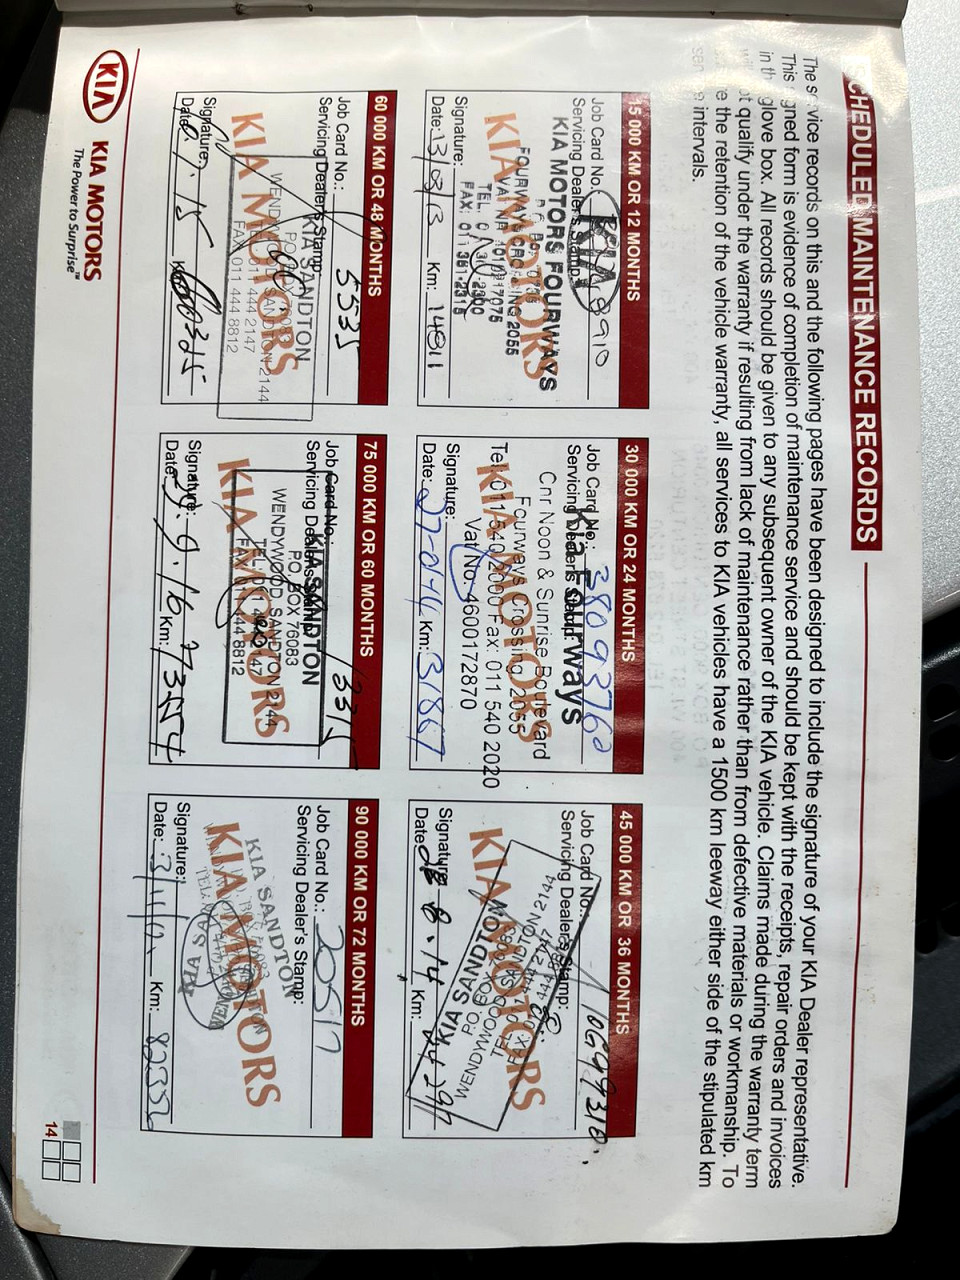 SCHEDULED MAINTENANCE RECORDS
The service records on this and the following pages have been designed to include the signature of your KIA Dealer representative.
This signed form is evidence of completion of maintenance service and should be kept with the receipts, repair orders and invoices
in the glove box. All records should be given to any subsequent owner of the KIA vehicle. Claims made during the warranty term
will not qualify under the warranty if resulting from lack of maintenance rather than from defective materials or workmanship. To
the retention of the vehicle warranty, all services to KIA vehicles have a 1500 km leeway either side of the stipulated km
service intervals.
15 000 KM OR 12 MONTHS
Job Card No.: 8910
Servicing Dealer's Stamp:
KIA MOTORS FOURWAYS
KIA MOTORS
FOURWAYS CROSSING 2055
FAX: 011 381-2315
Signature:
Date: 13/03/13 Km: 14811
30 000 KM OR 24 MONTHS
Job Card No.: 38093762
Servicing Dealer's Stamp:
Kia Fourways
Cnr Noon & Sunrise Boulevard
Fourways Crossing 2055
KIA MOTORS
Tel: 011 540 2000 Fax: 011 540 2020
Vat No: 4600172870
Signature:
Date: 27-04-14 Km: 31867
45 000 KM OR 36 MONTHS
Job Card No.:
Servicing Dealer's Stamp:
KIA MOTORS
KIA SANDTON
Signature:
Date: 8.14 Km:
60 000 KM OR 48 MONTHS
Job Card No.: 5535
Servicing Dealer's Stamp:
KIA SANDTON
KIA MOTORS
SANDTON 2144
011 444 2147
FAX 011 444 8812
Signature:
Date: 7.15
75 000 KM OR 60 MONTHS
Job Card No.: 13315
Servicing Dealer's Stamp:
KIA SANDTON
P.O. BOX 76083
WENDYWOOD, SANDTON 2144
KIA MOTORS
Signature:
Date: 9.16 Km: 73554
90 000 KM OR 72 MONTHS
Job Card No.: 20517
Servicing Dealer's Stamp:
KIA SANDTON
KIA MOTORS
Signature:
Date: Km:
KIA
KIA MOTORS
The Power to Surprise™
14